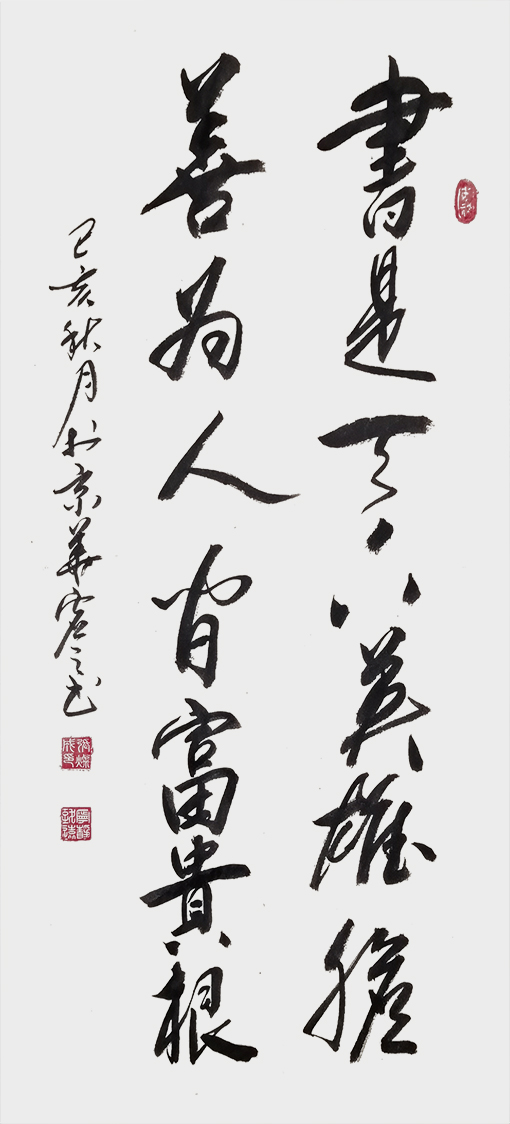 書是天下英雄膽
善為人間富貴根
己亥秋月於京華宏之書